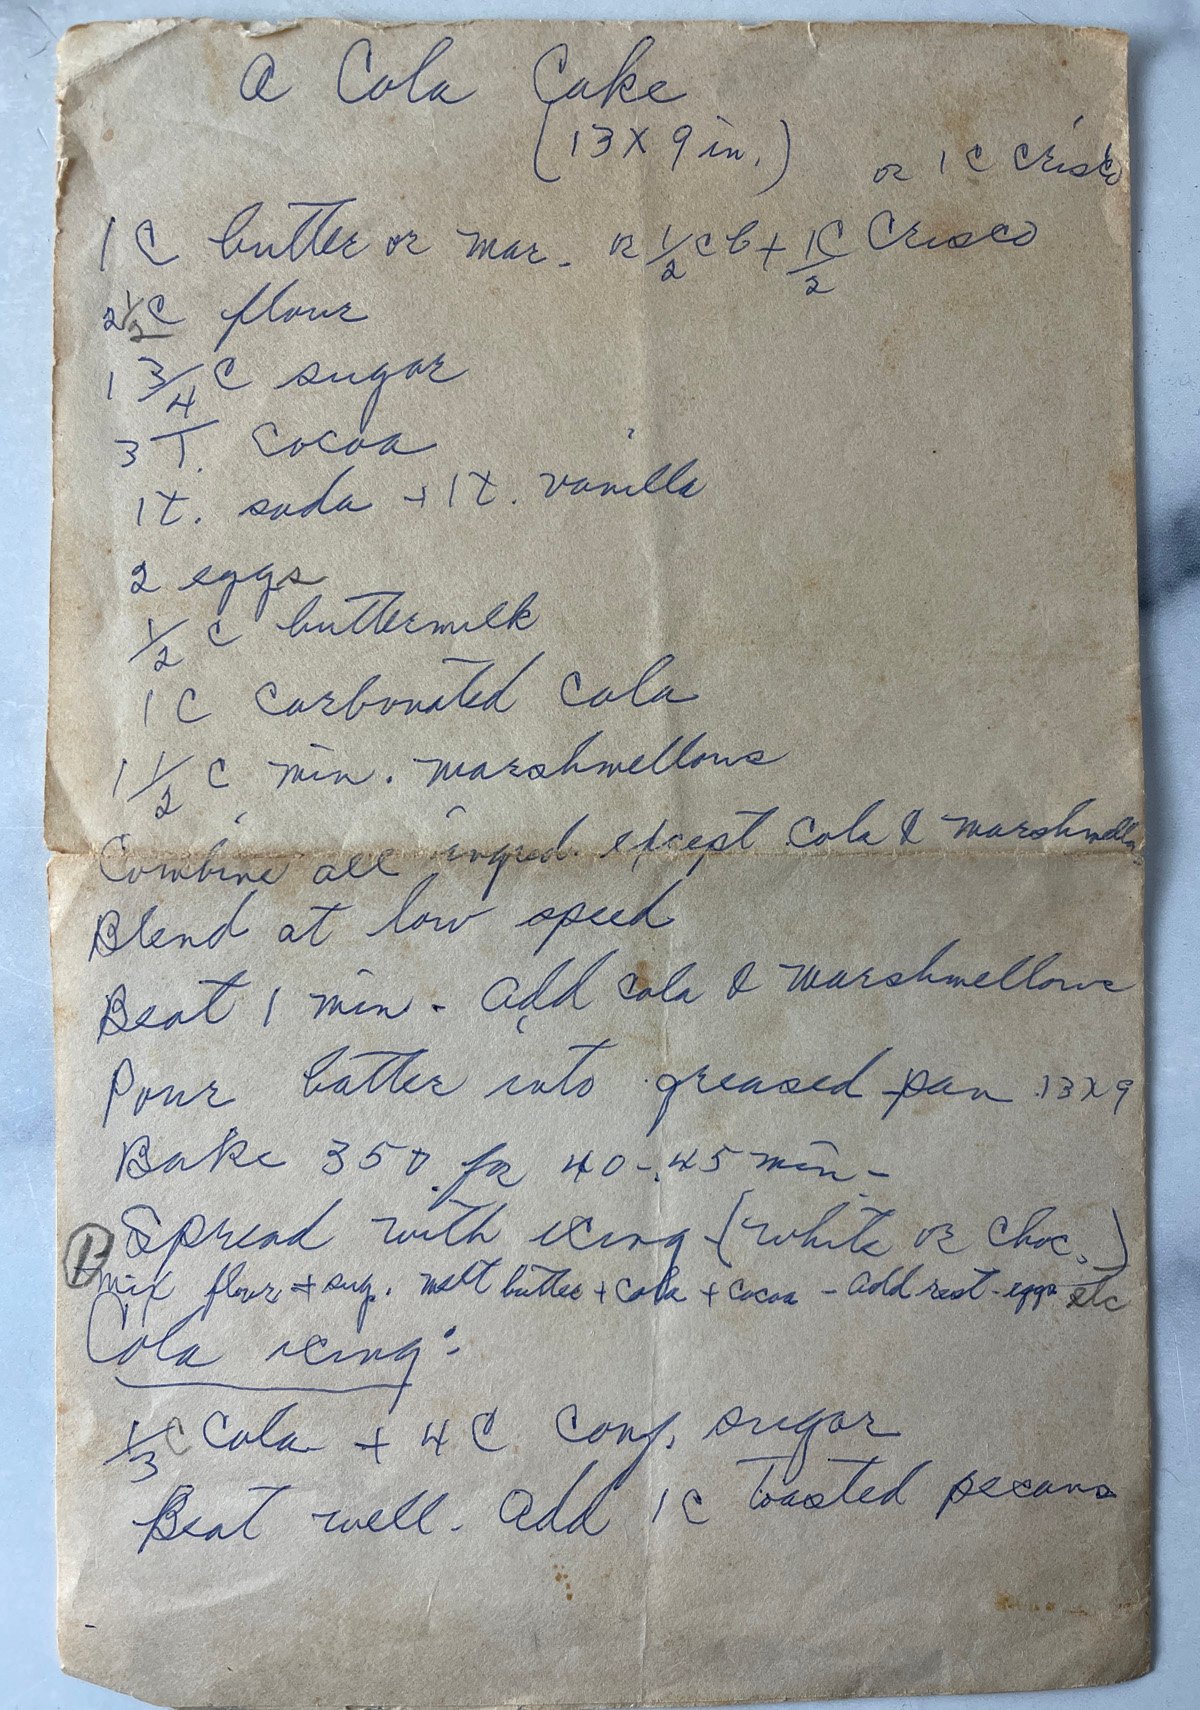 A Cola Cake
(13 X 9 in.)
or 1 C Crisco
1 C butter or mar. or 1/2 C b + 1/2 C Crisco
2 1/2 C flour
1 3/4 C sugar
3 T. cocoa
1 t. soda + 1 t. vanilla
2 eggs
1/2 C buttermilk
1 C carbonated cola
1 1/2 C min. marshmellows
Combine all ingred. except cola & marshmellows
Blend at low speed
Beat 1 min - add cola & marshmellows
Pour batter into greased pan 13X9
Bake 350 for 40-45 min -
Spread with icing - (white or choc.)
mix flour + sug. melt butter + cola + cocoa - add rest - eggs etc
Cola icing:
1/3 C Cola + 4 C conf. sugar
Beat well. add 1 C toasted pecans